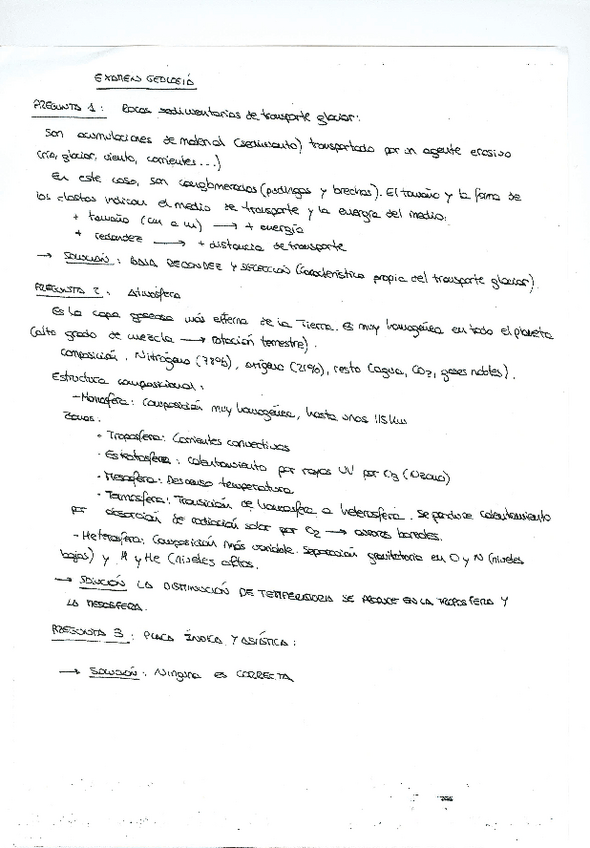 EXAMEN GEOLOGÍA
PREGUNTA 1: Rocas sedimentarias de transporte glaciar:
Son acumulaciones de material (sedimento) transportado por un agente erosivo
(río, glaciar, viento, corrientes...)
En este caso, son conglomerados (pudingas y brechas). El tamaño y la forma de
los clastos indican el medio de transporte y la energía del medio:
+ tamaño (cm a m) → + energía
+ redondez → + distancia de transporte
→ SOLUCIÓN: BAJA REDONDEZ Y SELECCIÓN (Característico propia del transporte glaciar).
PREGUNTA 2: Atmósfera
Es la capa gaseosa más externa de la Tierra. Es muy homogénea en todo el planeta
(alto grado de mezcla → rotación terrestre).
Composición. Nitrógeno (78%), oxígeno (21%), resto (agua, CO2, gases nobles).
Estructura composicional:
- Homosfera: Composición muy homogénea, hasta unos 115 km
Zonas:
• Troposfera: Corrientes convectivas
• Estratosfera: Calentamiento por rayos UV por O3 (Ozono)
• Mesosfera: Descenso temperatura
• Termosfera: Transición de homosfera a heterosfera. Se produce calentamiento
por absorción de radiación solar por O2 → auroras boreales.
- Heterosfera: Composición más variable. Separación gravitatoria en O y N (niveles
bajos) y H y He (niveles altos.
→ SOLUCIÓN LA DISMINUCIÓN DE TEMPERATURA SE PRODUCE EN LA TROPOSFERA Y
LA MESOSFERA.
PREGUNTA 3: PLACA ÍNDICA Y ASIÁTICA:
→ SOLUCIÓN: Ninguna es CORRECTA